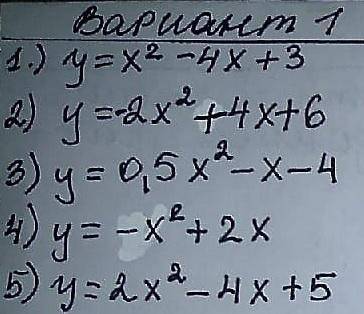 Вариант 1
1.) y = x² - 4x + 3
2) y = -2x² + 4x + 6
3) y = 0,5x² - x - 4
4) y = -x² + 2x
5) y = 2x² - 4x + 5